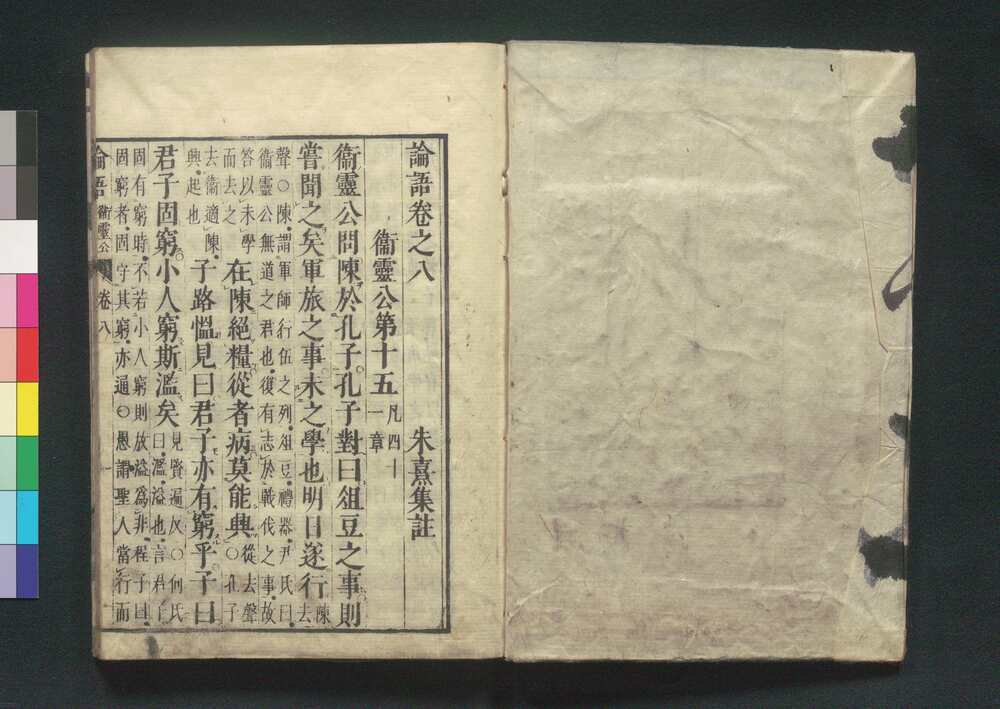 論語卷之八
朱熹集註
衞靈公第十五 凡四十一章
衞靈公問陳於孔子孔子對曰俎豆之事則
嘗聞之矣軍旅之事未之學也明日遂行 陳去
聲○陳謂軍師行伍之列俎豆禮器尹氏曰
衞靈公無道之君也復有志於戰伐之事故
答以未學而去之 在陳絕糧從者病莫能興 從去聲○孔子
去衞適陳興起也 子路慍見曰君子亦有窮乎子曰
君子固窮小人窮斯濫矣 見賢遍反○何氏曰濫溢也言君子
固有窮時不若小人窮則放溢爲非程子曰
固窮者固守其窮亦通○愚謂聖人當行而
論語 衞靈公 卷八